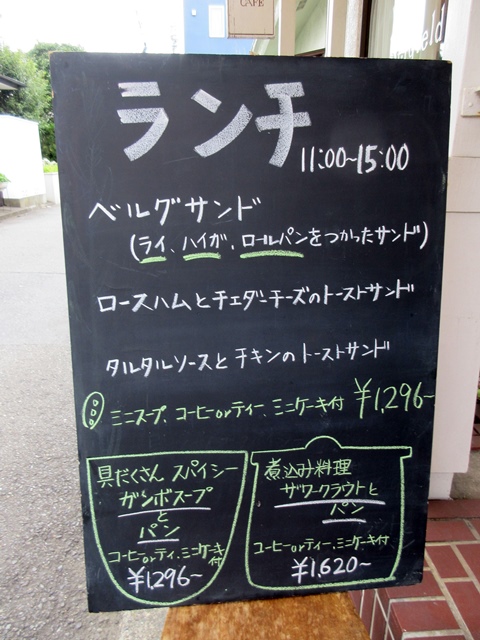 CAFE
ランチ
11:00~15:00
ベルグサンド
(ライ、ハイガ、ロールパンをつかったサンド)
ロースハムとチェダーチーズのトーストサンド
タルタルソースとチキンのトーストサンド
ミニスープ、コーヒーorティー、ミニケーキ付 ¥1,296~
具だくさん スパイシー
ガンボスープ
と
パン
コーヒーorティ、ミニケーキ付
¥1,296~
煮込み料理
ザワークラウトと
パン
コーヒーorティー、ミニケーキ付
¥1,620~